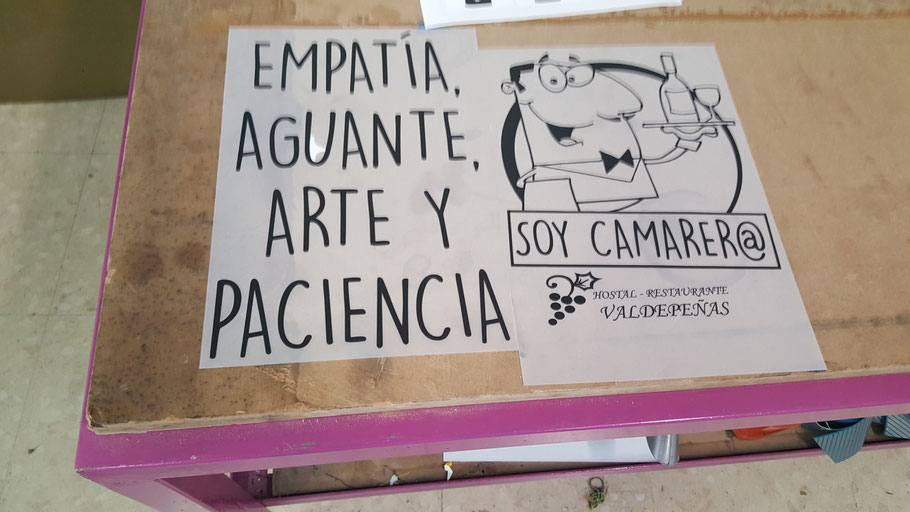 EMPATÍA,
AGUANTE,
ARTE Y
PACIENCIA
SOY CAMARER@
HOSTAL - RESTAURANTE
VALDEPEÑAS